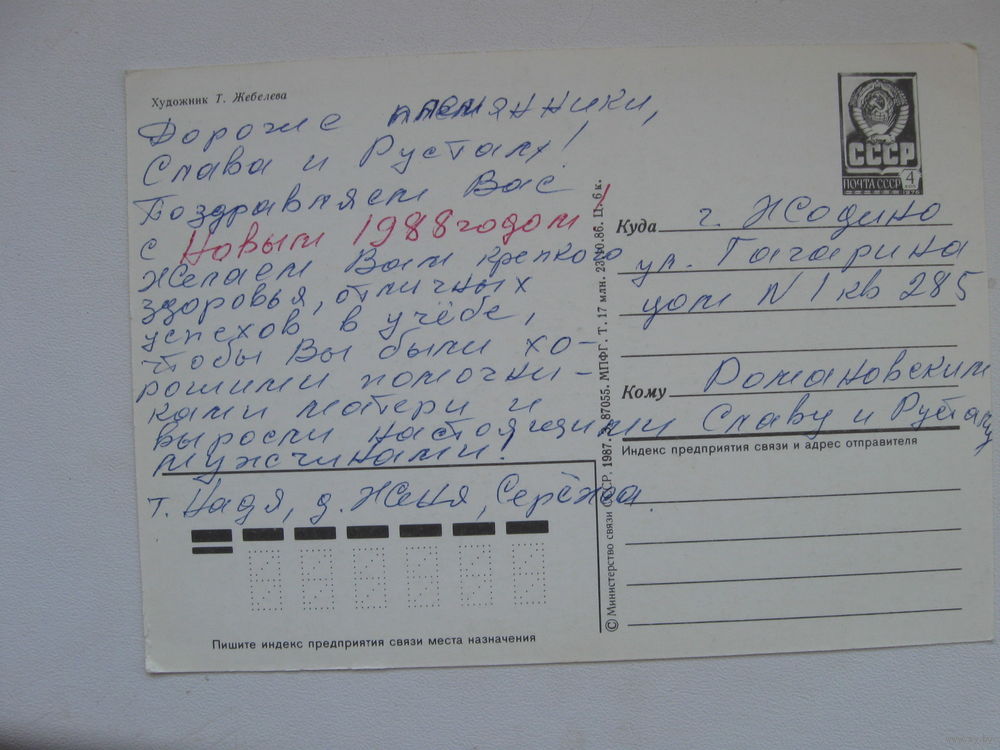 Художник Т. Жебелева
Дорогие племянники,
Слава и Русталм!
Поздравляем Вас
с Новым 1988 годом!
Желаем Вам крепкого
здоровья, отличных
успехов в учёбе,
чтобы Вы были хо-
рошими помочни-
ками матери и
выросли настоящими
мужчинами!
т. Надя, д. Женя, Серёжа.
Пишите индекс предприятия связи места назначения
© Министерство связи СССР, 1987. З. 87055. МПФГ. Т. 17 млн. 23.10.86. Ц. 6 к.
СССР
ПОЧТА СССР
4
1976
Куда г. Жодино
ул. Гагарина
дом N 1 кв 285
Кому Романовским
Славу и Рустаму
Индекс предприятия связи и адрес отправителя